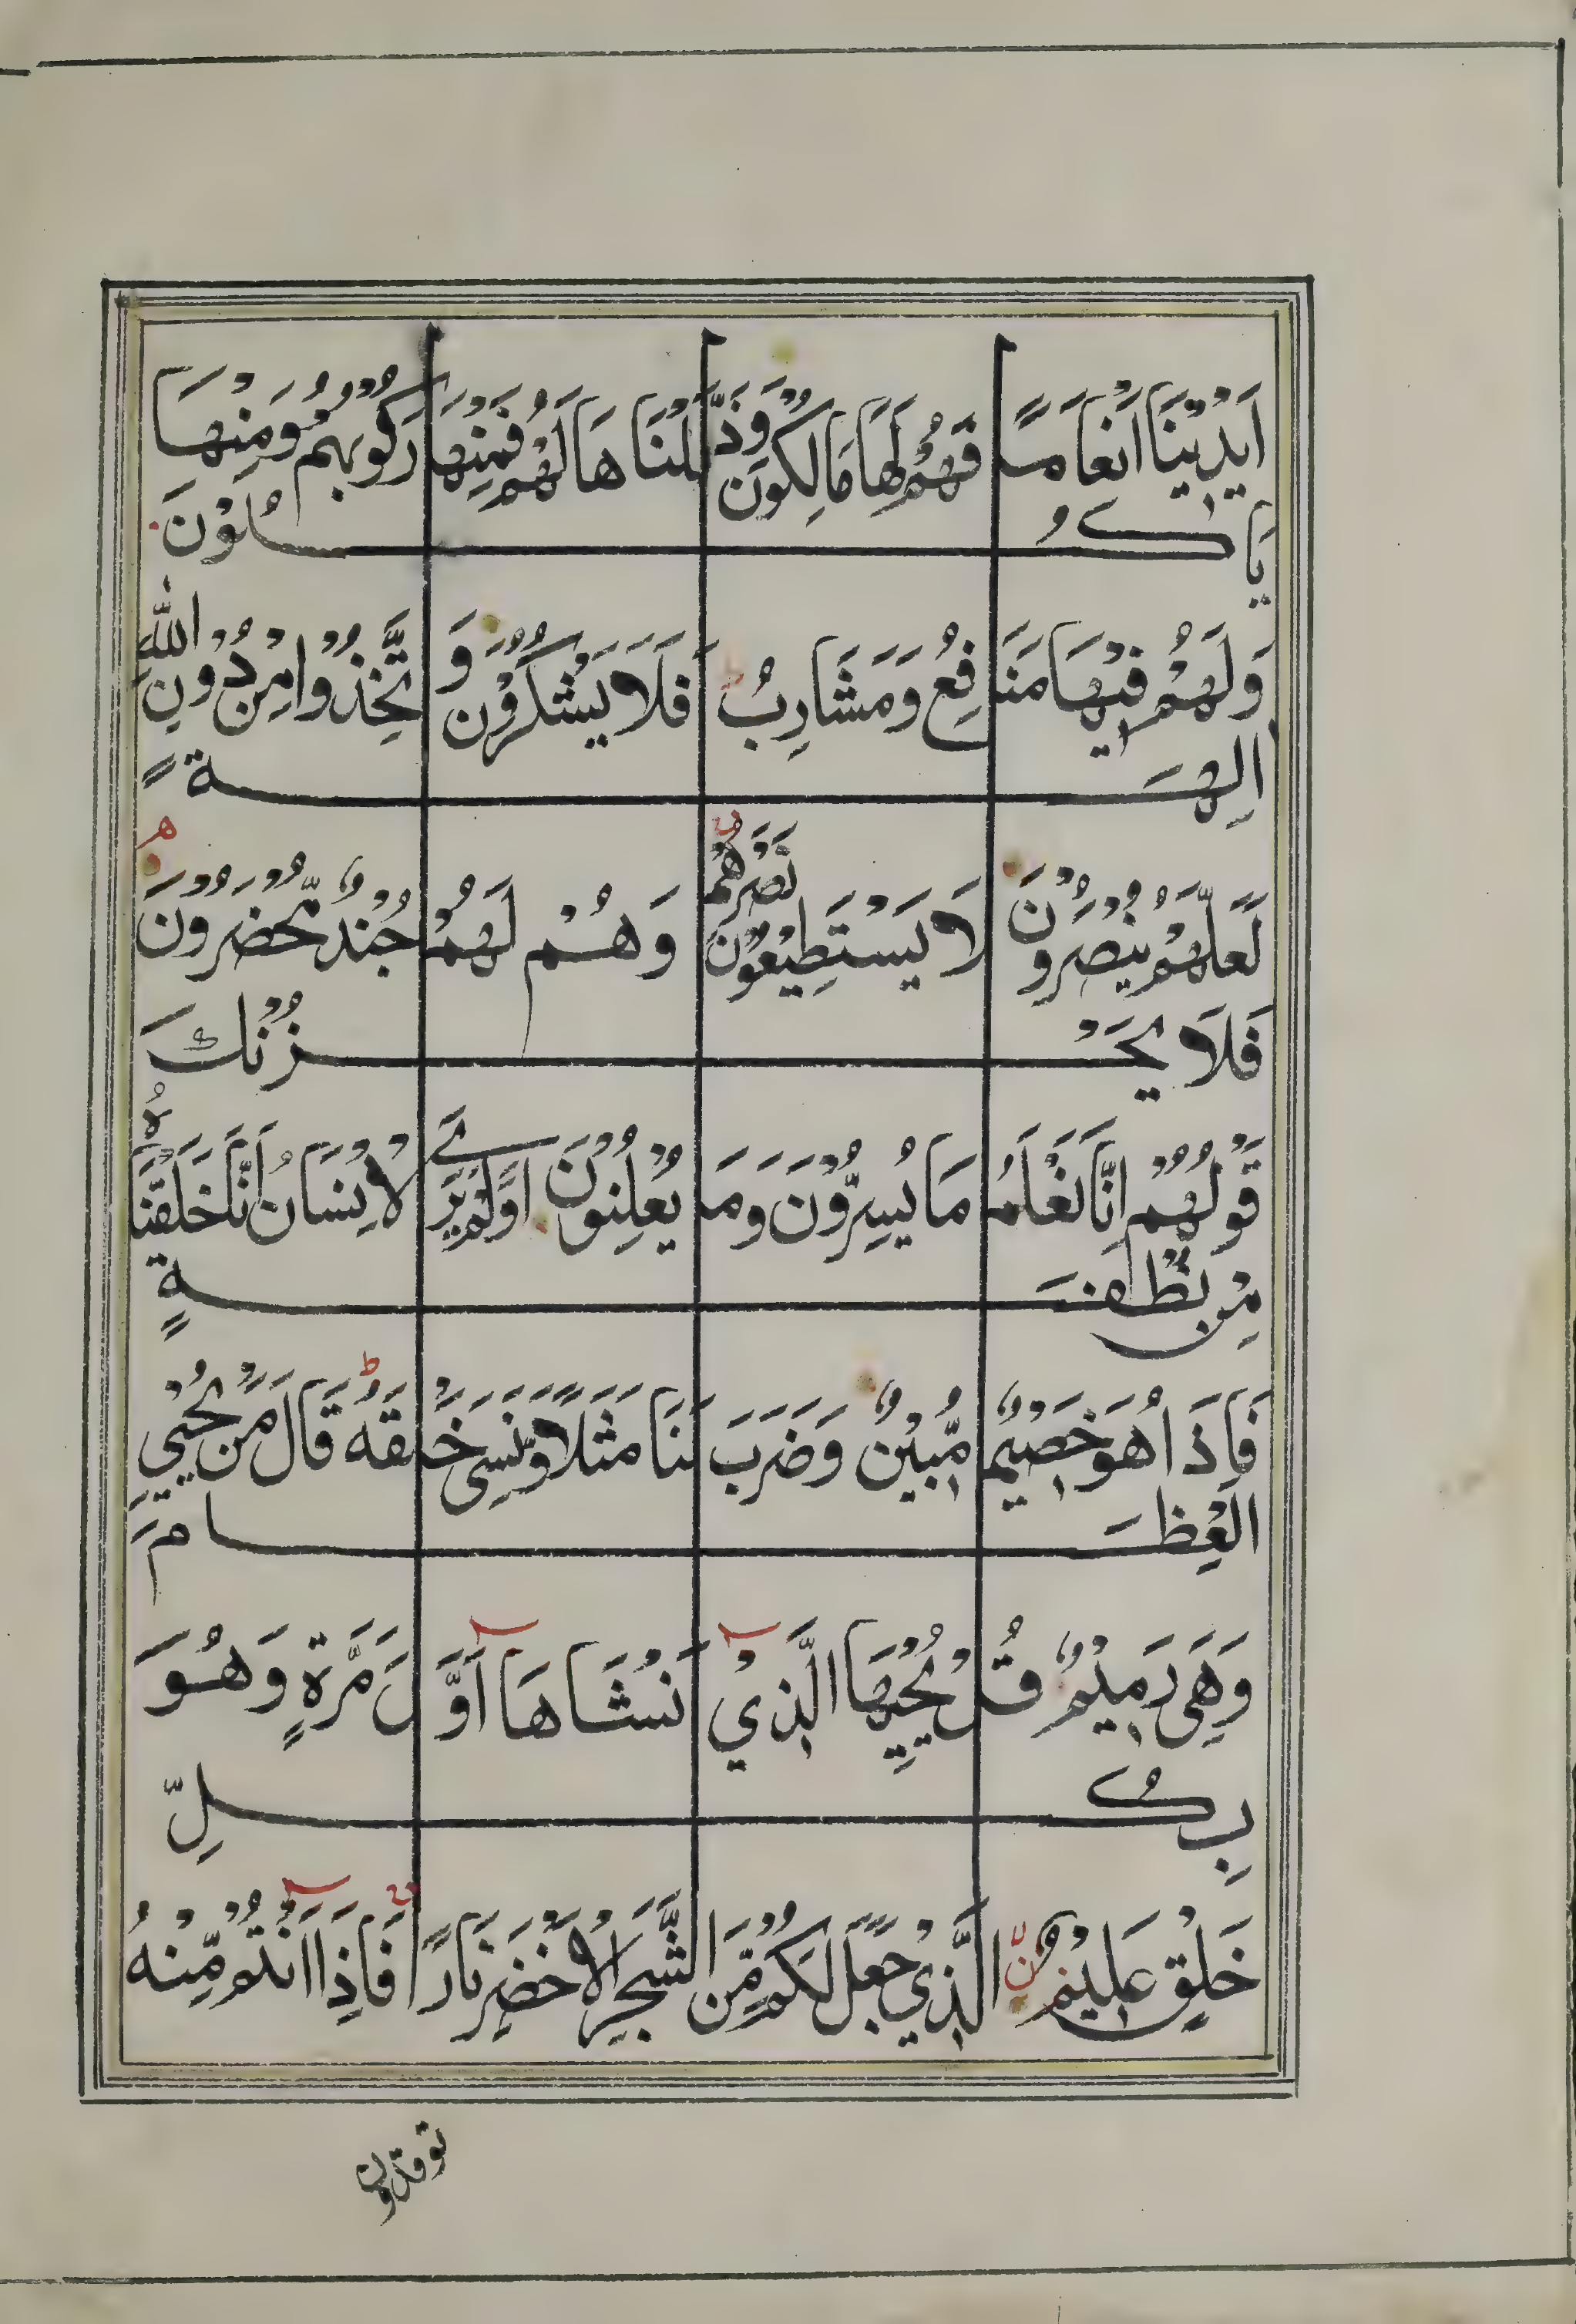 اَيْدِيْنَا اَنْعَامًا فَهُمْ لَهَا مَالِكُوْنَ وَذَلَّلْنَاهَا لَهُمْ فَمِنْهَا رَكُوْبُهُمْ وَمِنْهَا
يَاكُلُوْنَ
وَلَهُمْ فِيْهَا مَنَافِعُ وَمَشَارِبُ ط اَفَلَا يَشْكُرُوْنَ وَاتَّخَذُوْا مِنْ دُوْنِ اللّٰهِ
اٰلِهَةً
لَّعَلَّهُمْ يُنْصَرُوْنَ لَا يَسْتَطِيْعُوْنَ نَصْرَهُمْ وَهُمْ لَهُمْ جُنْدٌ مُّحْضَرُوْنَ
فَلَا يَحْزُنْكَ
قَوْلُهُمْ اِنَّا نَعْلَمُ مَا يُسِرُّوْنَ وَمَا يُعْلِنُوْنَ اَوَلَمْ يَرَ الْاِنْسَانُ اَنَّا خَلَقْنٰهُ
مِنْ نُّطْفَةٍ
فَاِذَا هُوَ خَصِيْمٌ مُّبِيْنٌ وَضَرَبَ لَنَا مَثَلًا وَّنَسِيَ خَلْقَهُ ط قَالَ مَنْ يُّحْيِي
الْعِظَامَ
وَهِيَ رَمِيْمٌ قُلْ يُحْيِيْهَا الَّذِيْ اَنْشَاَهَا اَوَّلَ مَرَّةٍ وَهُوَ
بِكُلِّ
خَلْقٍ عَلِيْمُ نِ الَّذِيْ جَعَلَ لَكُمْ مِّنَ الشَّجَرِ الْاَخْضَرِ نَارًا فَاِذَا اَنْتُمْ مِّنْهُ
توقدون